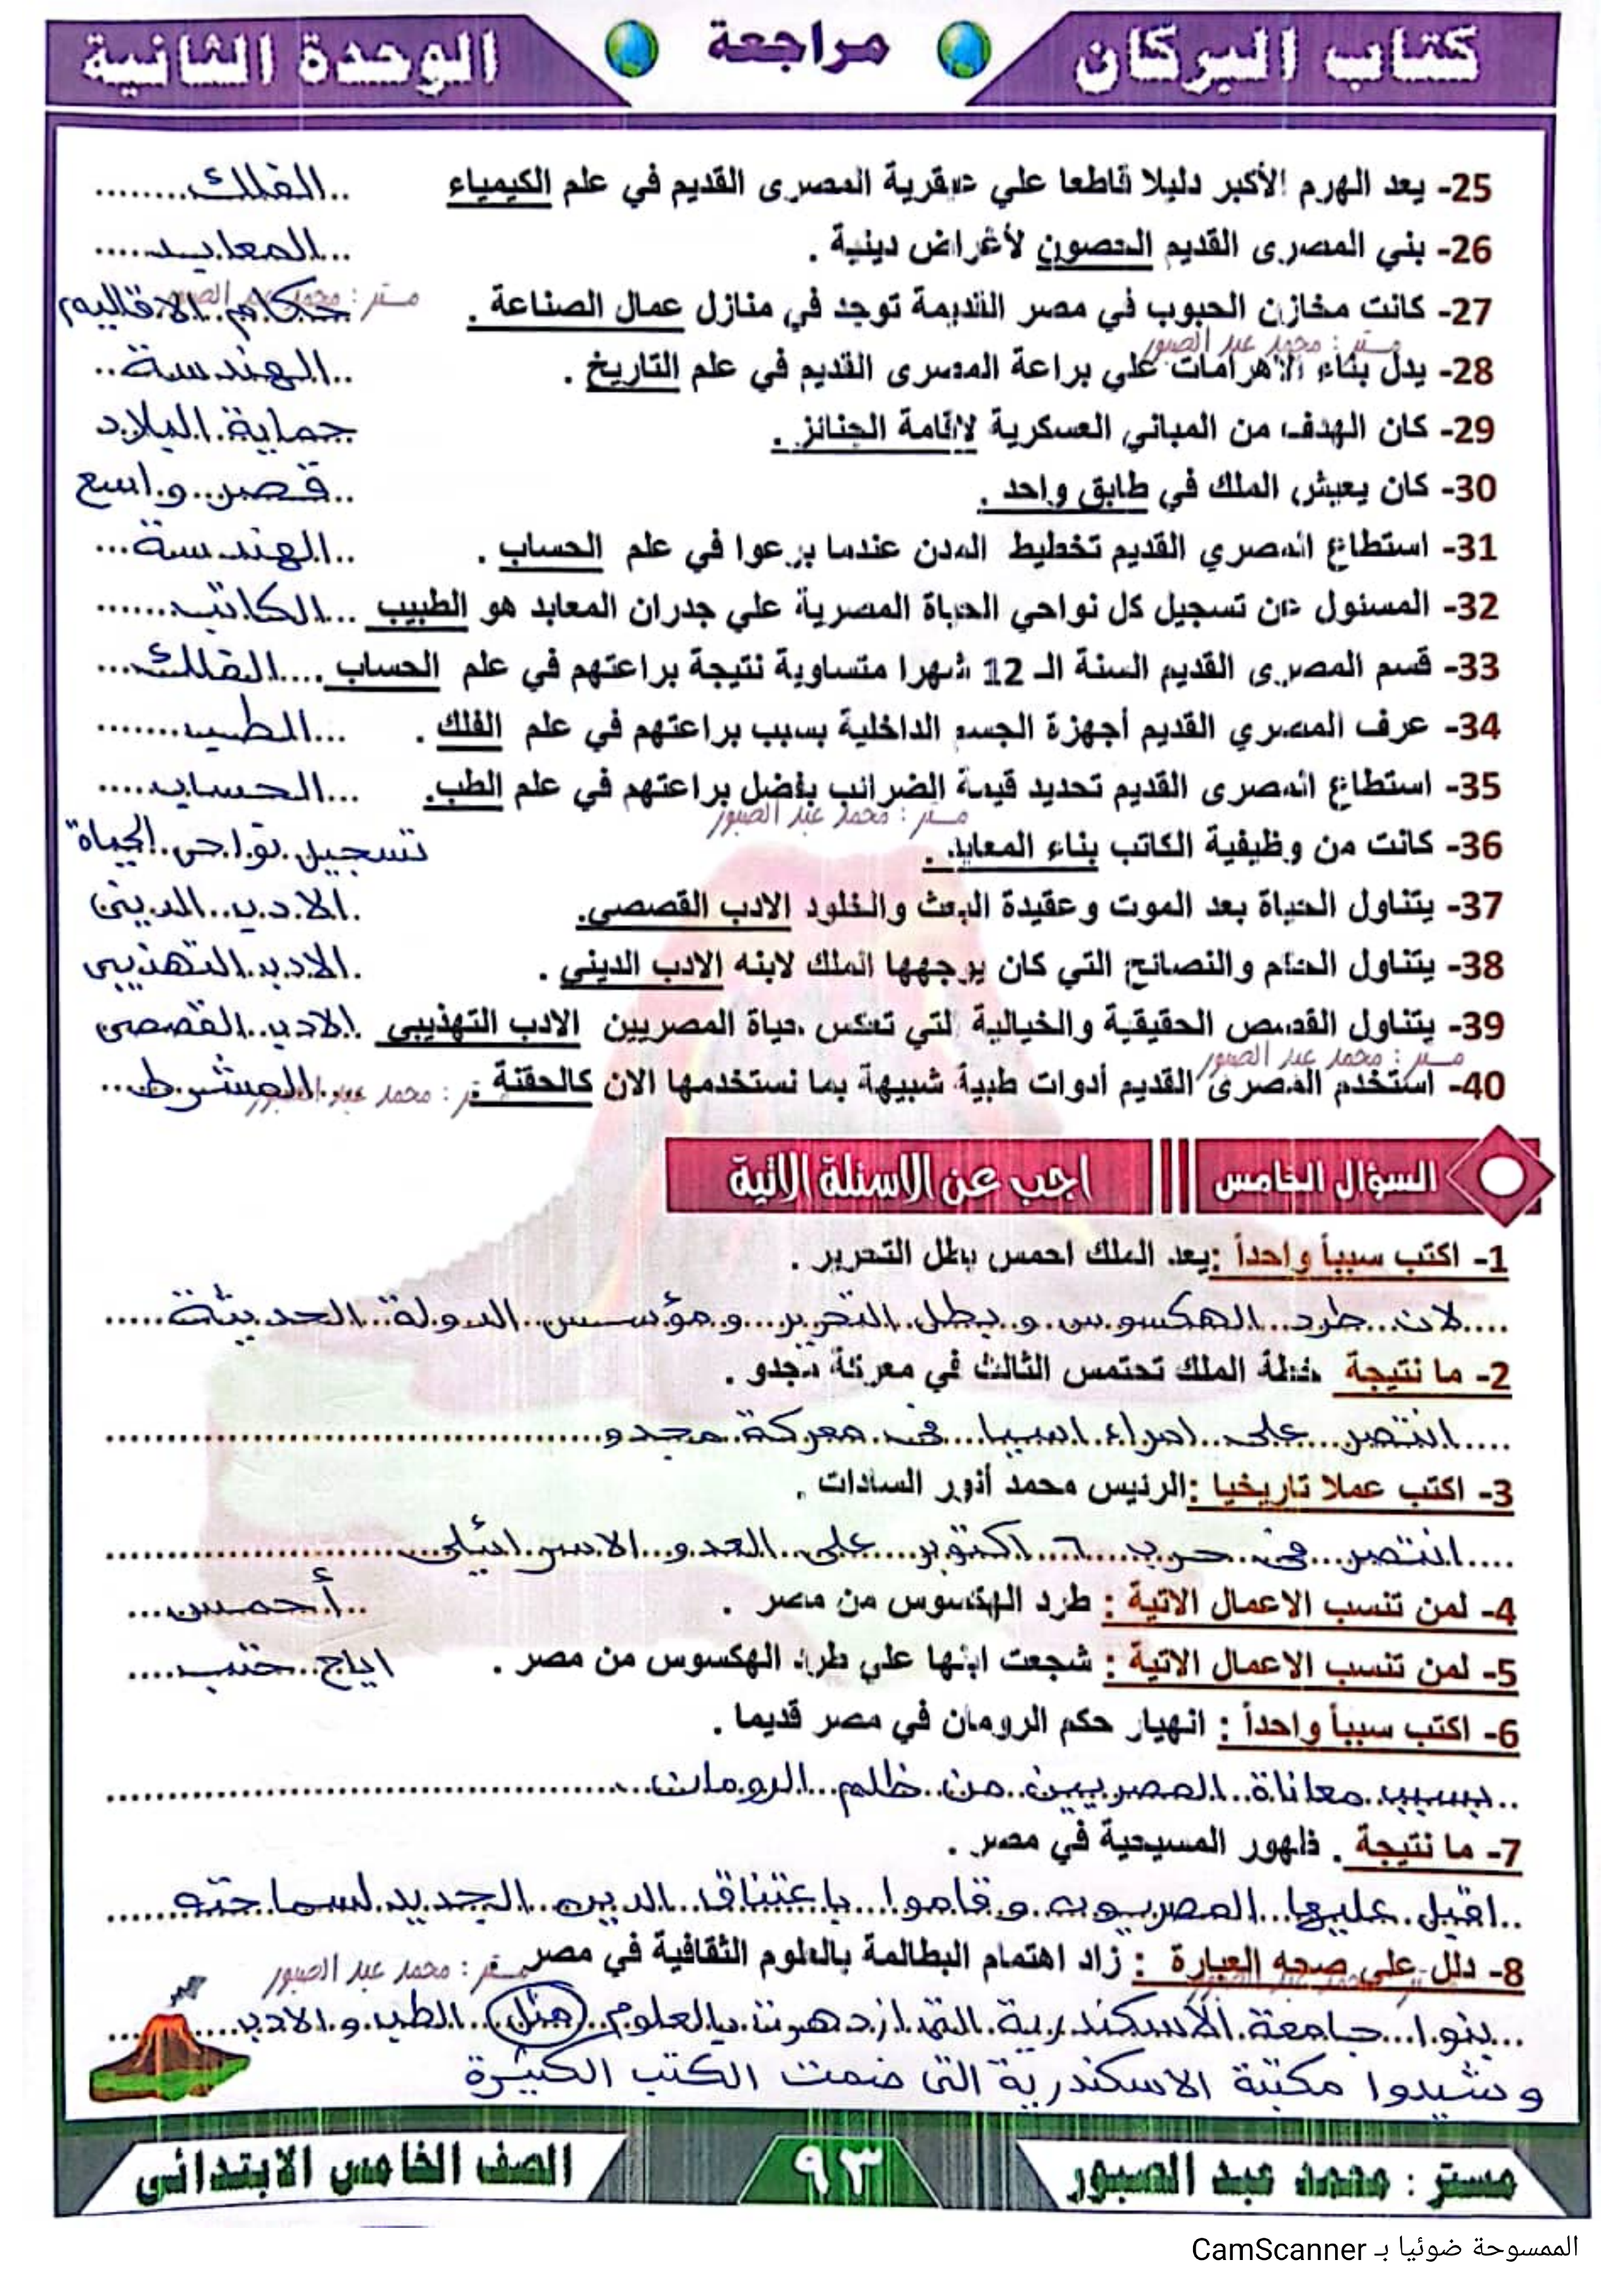 كتاب البركان
مراجعة
الوحدة الثانية
25- يعد الهرم الأكبر دليلا قاطعا علي عبقرية المصرى القديم في علم الكيمياء ..الفلك........
26- بني المصرى القديم الحصون لأغراض دينية . ...المعابد.....
27- كانت مخازن الحبوب في مصر القديمة توجد في منازل عمال الصناعة . حكام الاقاليم
مستر : محمد عبد الصبور
مستر : محمد عبد الصبور
28- يدل بناء الأهرامات علي براعة المصرى القديم في علم التاريخ . ..الهندسة..
29- كان الهدف من المباني العسكرية لاقامة الجنائز . حماية البلاد
30- كان يعيش الملك في طابق واحد . ..قصر واسع
31- استطاع المصري القديم تخطيط المدن عندما برعوا في علم الحساب . ..الهندسة...
32- المسئول عن تسجيل كل نواحي الحياة المصرية علي جدران المعابد هو الطبيب ...الكاتب.......
33- قسم المصرى القديم السنة الـ 12 شهرا متساوية نتيجة براعتهم في علم الحساب ....الفلك...
34- عرف المصري القديم أجهزة الجسم الداخلية بسبب براعتهم في علم الفلك . ...الطب.......
35- استطاع المصرى القديم تحديد قيمة الضرائب بفضل براعتهم في علم الطب. ...الحساب.....
مستر : محمد عبد الصبور
36- كانت من وظيفية الكاتب بناء المعابد . تسجيل نواحى الحياة
37- يتناول الحياة بعد الموت وعقيدة البعث والخلود الادب القصصي. .الادب الدينى
38- يتناول الحكم والنصائح التي كان يوجهها الملك لابنه الادب الديني . .الادب التهذيبى
39- يتناول القصص الحقيقية والخيالية التي تعكس حياة المصريين الادب التهذيبى .الادب القصصى
مستر : محمد عبد الصبور
40- استخدم المصرى القديم أدوات طبية شبيهة بما نستخدمها الان كالحقنة . المشرط...
مستر : محمد عبد الصبور
السؤال الخامس
اجب عن الاسئلة الاتية
1- اكتب سبباً واحداً :يعد الملك احمس بطل التحرير .
....لان طرد الهكسوس و بطل التحرير و مؤسس الدولة الحديثة.....
2- ما نتيجة خطة الملك تحتمس الثالث في معركة مجدو .
....انتصر على امراء اسيا فى معركة مجدو
3- اكتب عملا تاريخيا :الرئيس محمد أنور السادات .
....انتصر فى حرب ٦ اكتوبر على العدو الاسرائيلى
4- لمن تنسب الاعمال الاتية : طرد الهكسوس من مصر . ..أحمس...
5- لمن تنسب الاعمال الاتية : شجعت ابنها علي طرد الهكسوس من مصر . اياح حتب....
6- اكتب سبباً واحداً : انهيار حكم الرومان في مصر قديما .
..بسبب معاناة المصريين من ظلم الرومان
7- ما نتيجة . ظهور المسيحية في مصر .
..اقبل عليها المصريون و قاموا باعتناق الدين الجديد لسماحته
8- دلل علي صحه العبارة : زاد اهتمام البطالمة بالعلوم الثقافية في مصر .
مستر : محمد عبد الصبور
...بنوا جامعة الأسكندرية التى ازدهرت بالعلوم مثل الطب و الادب
و شيدوا مكتبة الاسكندرية التى ضمت الكتب الكبيرة
مستر : محمد عبد الصبور
٩٣
الصف الخامس الابتدائى
الممسوحة ضوئيا بـ CamScanner